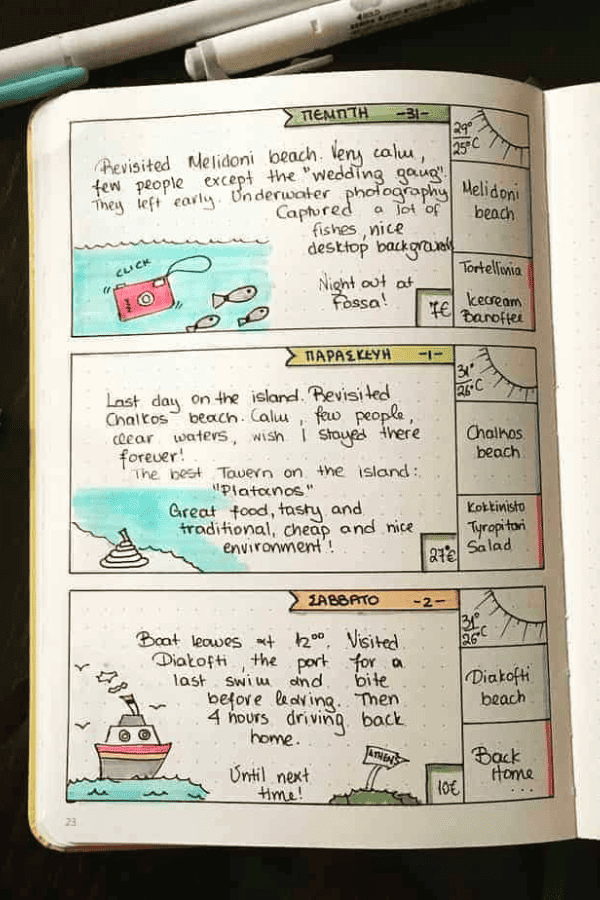 ΠΕΜΠΤΗ -31-
29°
25°C
Revisited Melidoni beach. Very calm,
few people except the "wedding gang".
They left early. Underwater photography
Captured a lot of
fishes, nice
desktop backgrounds
Melidoni
beach
CLICK
Night out at
Fossa!
7€
Tortellinia
Icecream
Banoffee
ΠΑΡΑΣΚΕΥΗ -1-
31°
26°C
Last day on the island. Revisited
Chalkos beach. Calm, few people,
clear waters, wish I stayed there
forever!
The best Tavern on the island:
"Platanos"
Great food, tasty and
traditional, cheap and nice
environment!
Chalkos
beach
27€
Kokkinisto
Tyropitari
Salad
ΣΑΒΒΑΤΟ -2-
31°
26°C
Boat leaves at 12⁰⁰. Visited
Diakofti, the port for a
last swim and bite
before leaving. Then
4 hours driving back
home.
Until next
time!
Diakofti
beach
ATHENS
10€
Back
Home
...
23